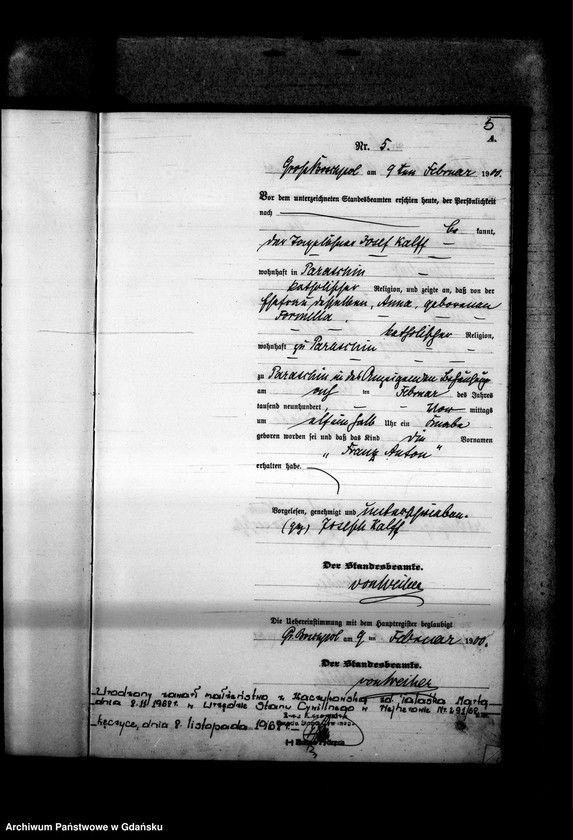 5
A.
Nr. 5.
am 9 ten Februar 1900.
Vor dem unterzeichneten Standesbeamten erschien heute, der Persönlichkeit
nach
be kannt,
der Josef Kalff
wohnhaft in Paraschin
katholischer Religion, und zeigte an, daß von der
Ehefrau desselben, Anna, geborenen
Formella,
katholischer Religion,
wohnhaft zu Paraschin
zu Paraschin in des Anzeigenden Behausung
am ten Februar des Jahres
tausend neunhundert, Vor mittags
um elfeinhalb Uhr ein Knabe
geboren worden sei und daß das Kind die Vornamen
„Franz Anton“
erhalten habe.
Vorgelesen, genehmigt und unterschrieben.
(gez) Joseph Kalff
Der Standesbeamte.
von Weiher
Die Uebereinstimmung mit dem Hauptregister beglaubigt
am 9 ten Februar 1900.
Der Standesbeamte.
von Weiher
Urodzony zawarł małżeństwo z zd. Marta
dnia 8.11.1968 r. w Urzędzie Stanu Cywilnego w Wejherowie Nr. 291/68
Łęczyce, dnia 8. listopada 1968 r.
Archiwum Państwowe w Gdańsku